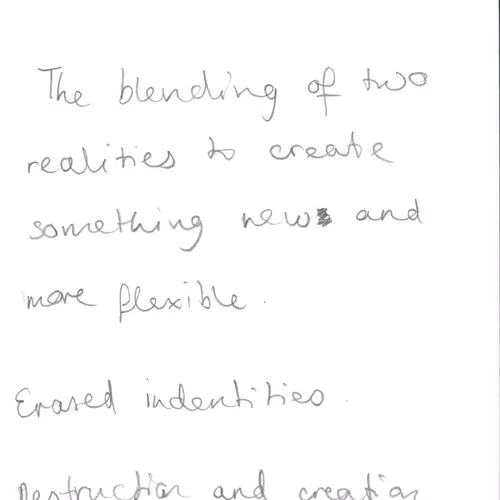 The blending of two
realities to create
something new and
more flexible.
Erased indentities.
Destruction and creation